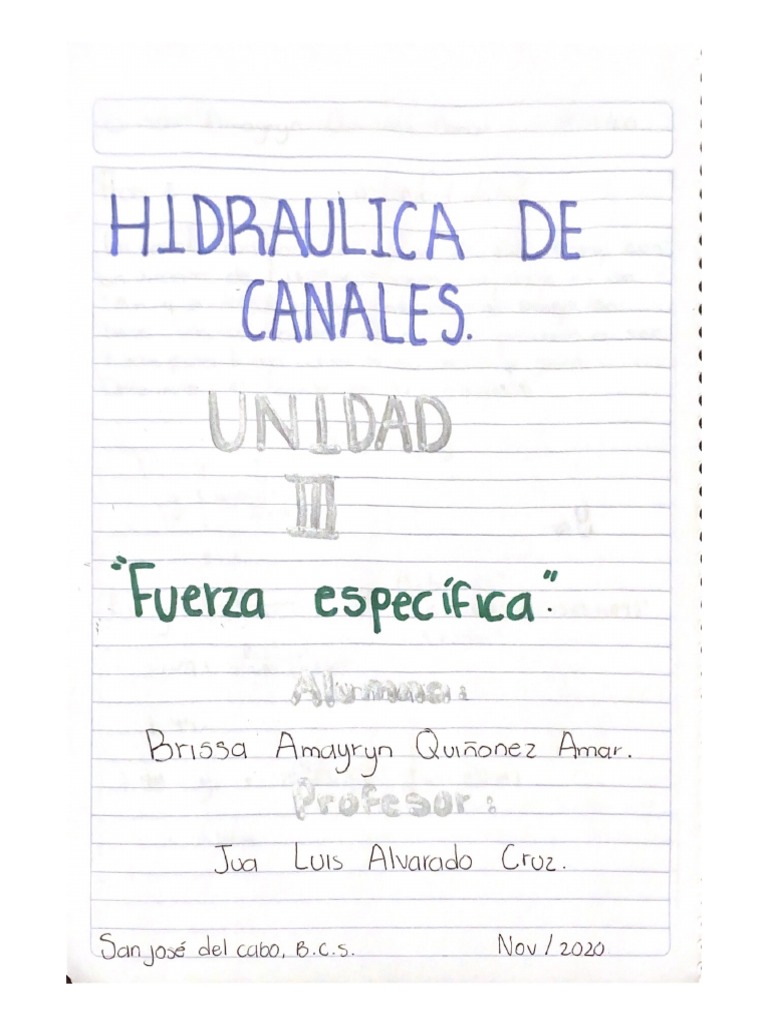 HIDRAULICA DE
CANALES.
UNIDAD
III
"Fuerza específica".
Alumna:
Brissa Amayryn Quiñonez Amar.
Profesor:
Jua Luis Alvarado Cruz.
San José del cabo, B.C.S. Nov/2020